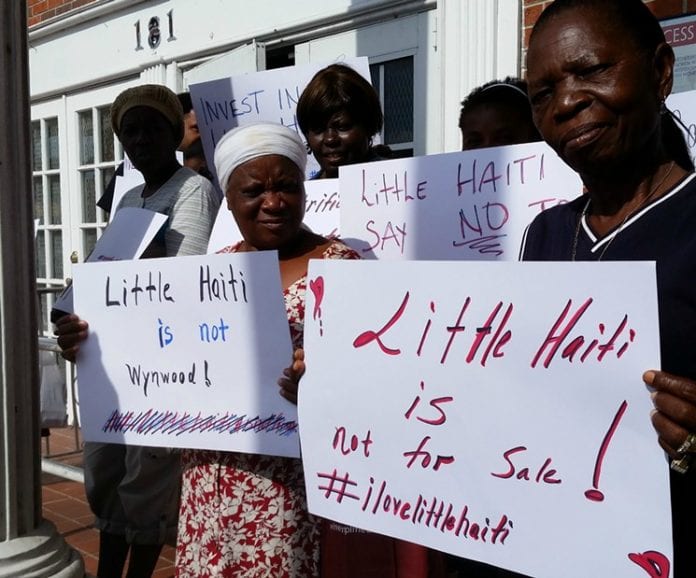 181
CESS
INVEST IN
Little HAITI
SAY NO TO
Little Haiti
is not
Wynwood!
Little Haiti
is
not for Sale!
#ilovelittlehaiti